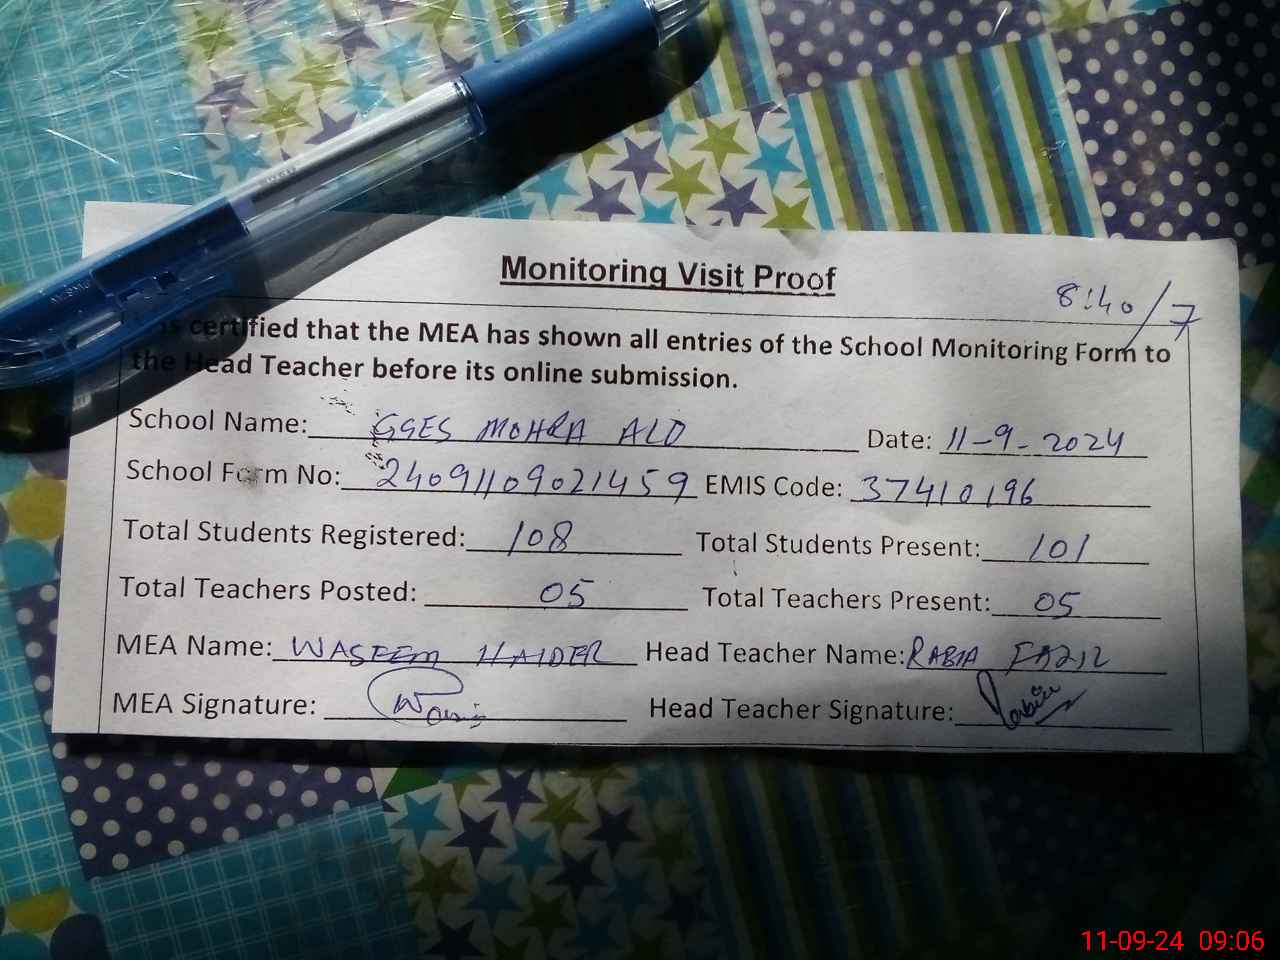 Monitoring Visit Proof
8:40/7
is certified that the MEA has shown all entries of the School Monitoring Form to
the Head Teacher before its online submission.
School Name: GGES MOHRA ALO Date: 11-9-2024
School Form No: 24091109021459 EMIS Code: 37410196
Total Students Registered: 108 Total Students Present: 101
Total Teachers Posted: 05 Total Teachers Present: 05
MEA Name: WASEEM HAIDER Head Teacher Name: RABIA FAZIL
MEA Signature: Head Teacher Signature: Rabia
11-09-24 09:06